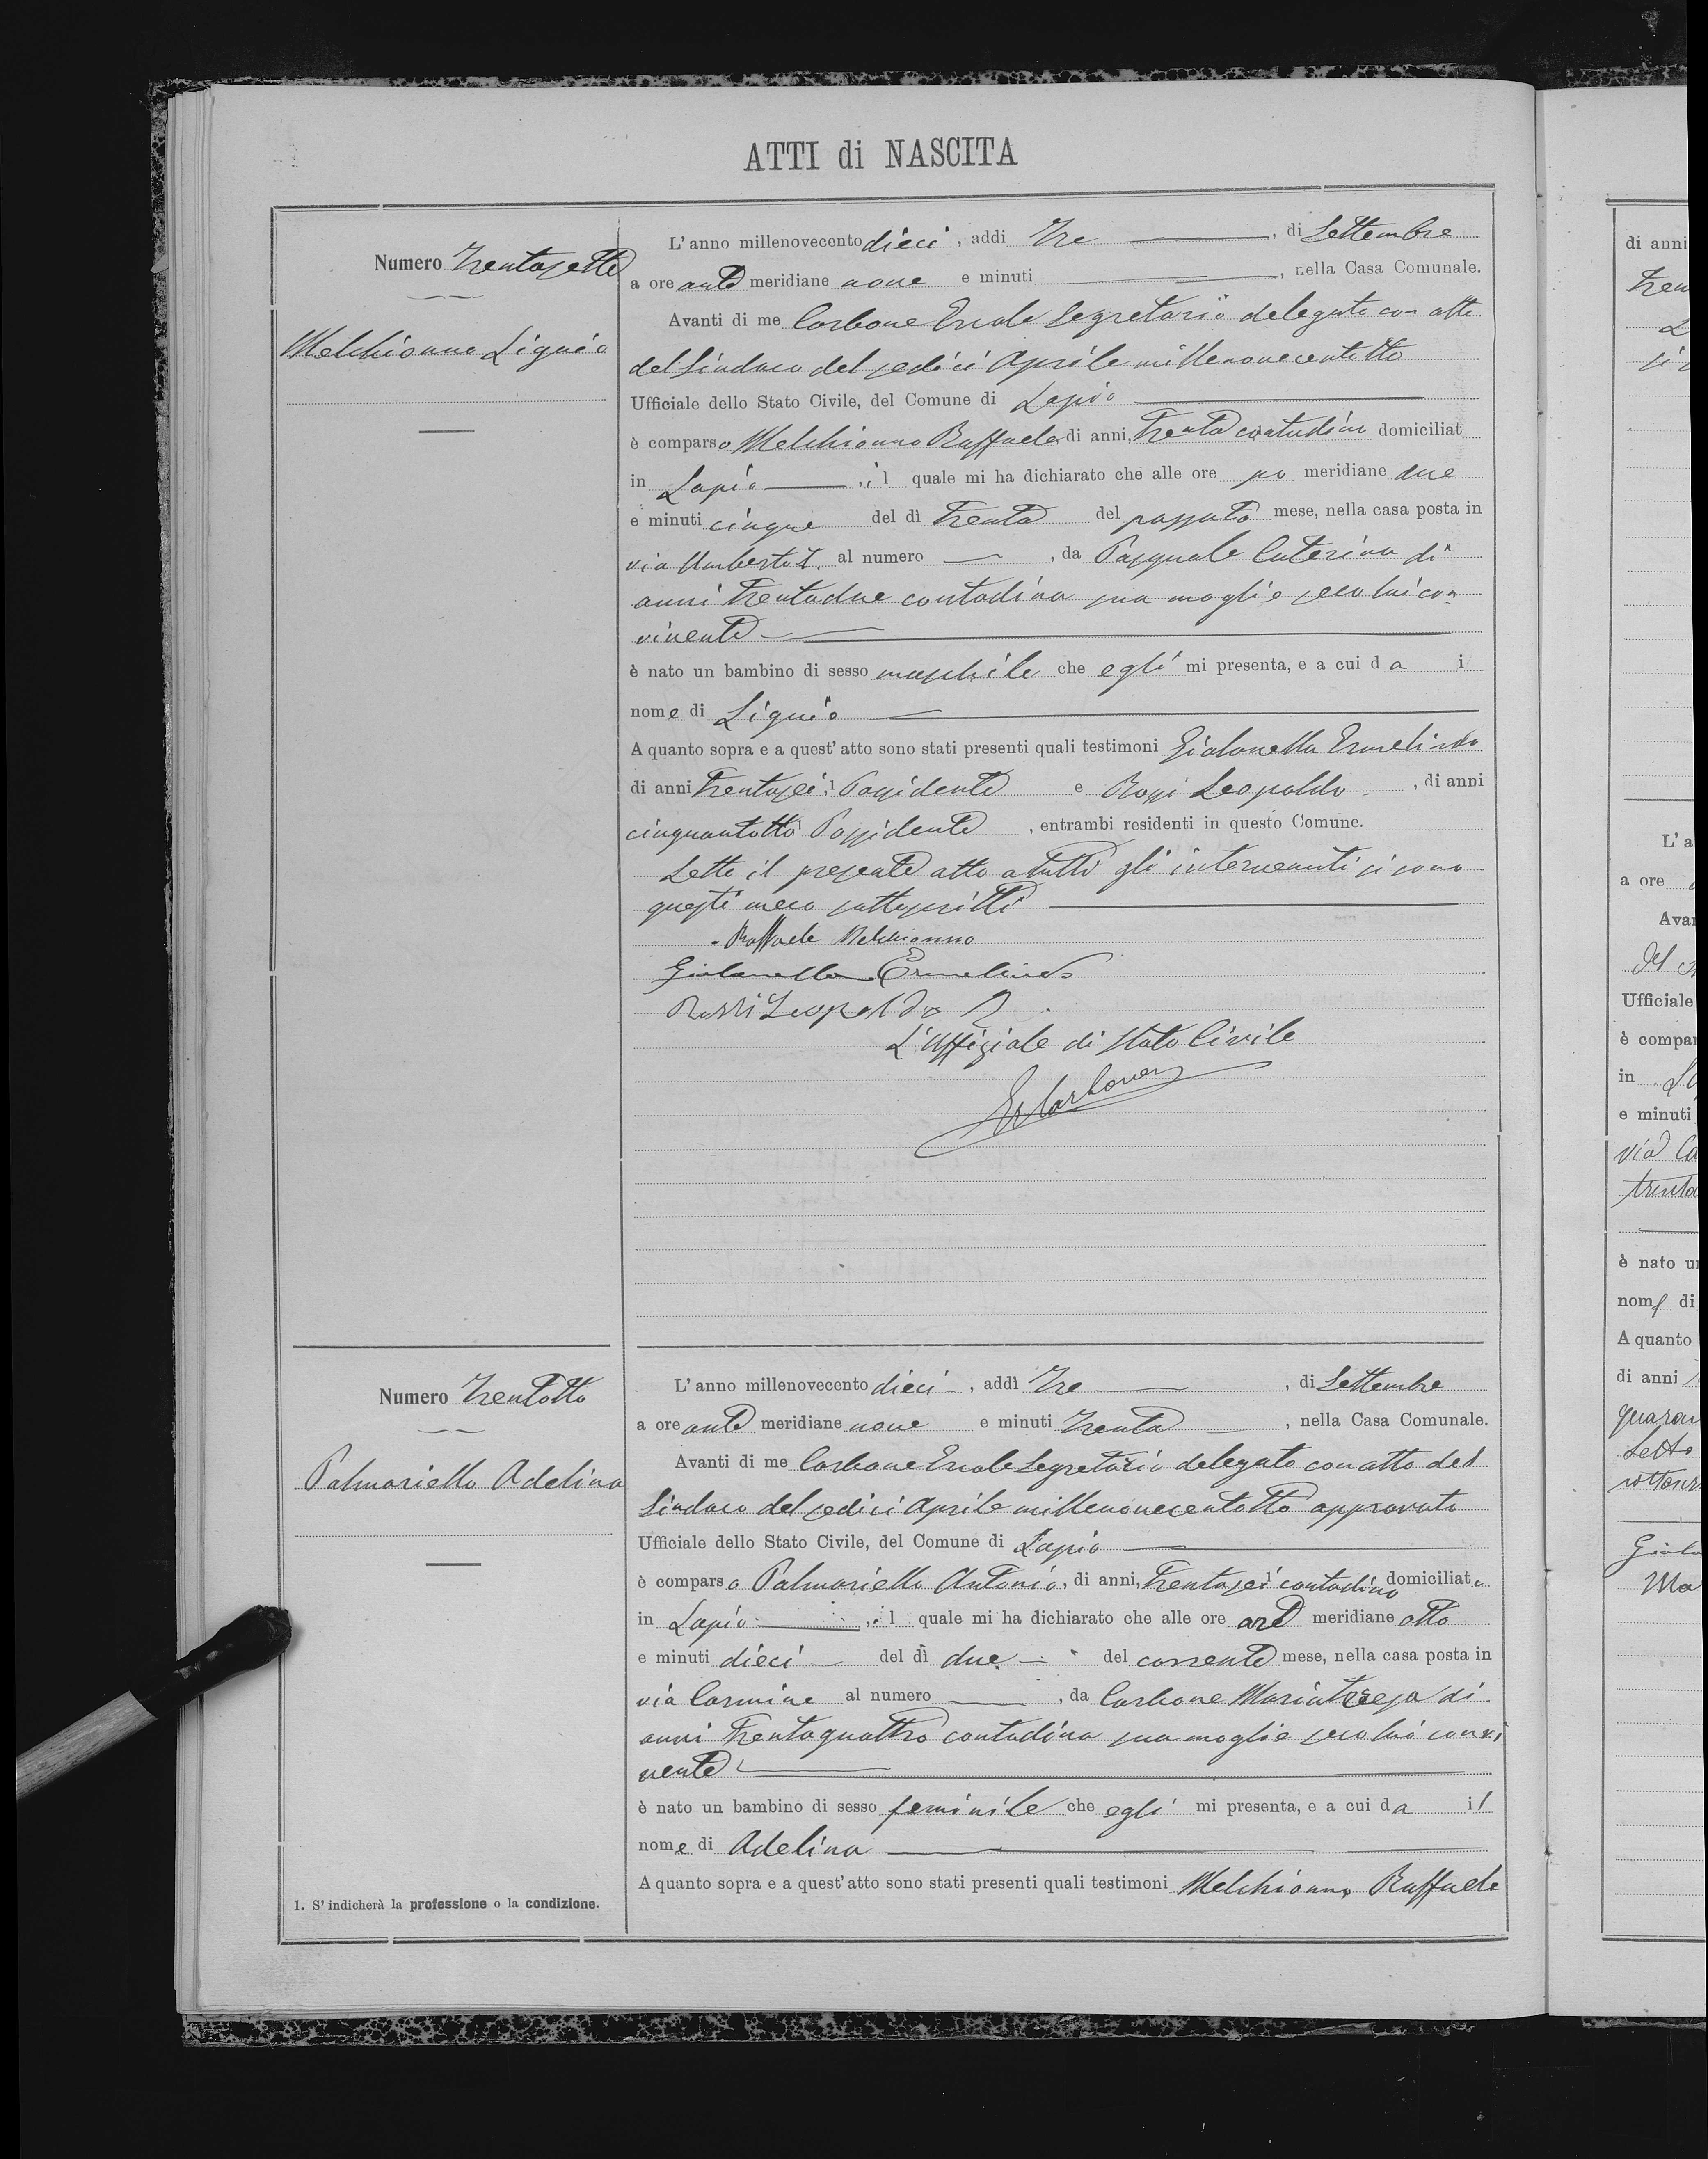 ATTI di NASCITA
Numero Trentasette
Melchionno Liguio
L'anno millenovecento dieci, addì Tre, di Settembre
a ore ante meridiane nove e minuti, nella Casa Comunale.
Avanti di me Carbone Ercole Segretario delegato con atto
del Sindaco del sedici Aprile millenovecentotto
Ufficiale dello Stato Civile, del Comune di Lapio
è comparso Melchionno Raffaele, di anni, Trenta contadino domiciliat
in Lapio, il quale mi ha dichiarato che alle ore po meridiane due
e minuti cinque del dì Trenta del passato mese, nella casa posta in
via Umberto I. al numero, da Pasquale Caterina di
anni Trentadue contadina sua moglie seco lui con
vivente
è nato un bambino di sesso maschile che egli mi presenta, e a cui da i
nome di Liguio
A quanto sopra e a quest'atto sono stati presenti quali testimoni Giolanella Ermelindo
di anni Trentasei, Possidente e Rossi Leopoldo, di anni
cinquantotto Possidente, entrambi residenti in questo Comune.
Letto il presente atto a tutti gli intervenuti si sono
questi meco sottoscritti
Raffaele Melchionno
Giolanella Ermelindo
Rossi Leopoldo
L'Uffiziale di Stato Civile
E Carbone
Numero Trentotto
Palmariello Adelina
L'anno millenovecento dieci, addì Tre, di Settembre
a ore ante meridiane nove e minuti Trenta, nella Casa Comunale.
Avanti di me Carbone Ercole Segretario delegato con atto del
Sindaco del sedici Aprile millenovecentotto approvato
Ufficiale dello Stato Civile, del Comune di Lapio
è comparso Palmariello Antonio, di anni, Trentasei contadino domiciliato
in Lapio, il quale mi ha dichiarato che alle ore ant meridiane otto
e minuti dieci del dì due del corrente mese, nella casa posta in
via Carmine al numero, da Carbone Mariateresa di
anni Trentaquattro contadina sua moglie seco lui convi
vente
è nato un bambino di sesso feminile che egli mi presenta, e a cui da il
nome di Adelina
A quanto sopra e a quest'atto sono stati presenti quali testimoni Melchionno Raffaele
1. S'indicherà la professione o la condizione.
di anni
Tren
L'a
a ore
Avan
del
Ufficiale
è compar
in
e minuti
via Ca
trenta
è nato un
nome di
A quanto
di anni
quaran
Letto
sottoscr
Giola